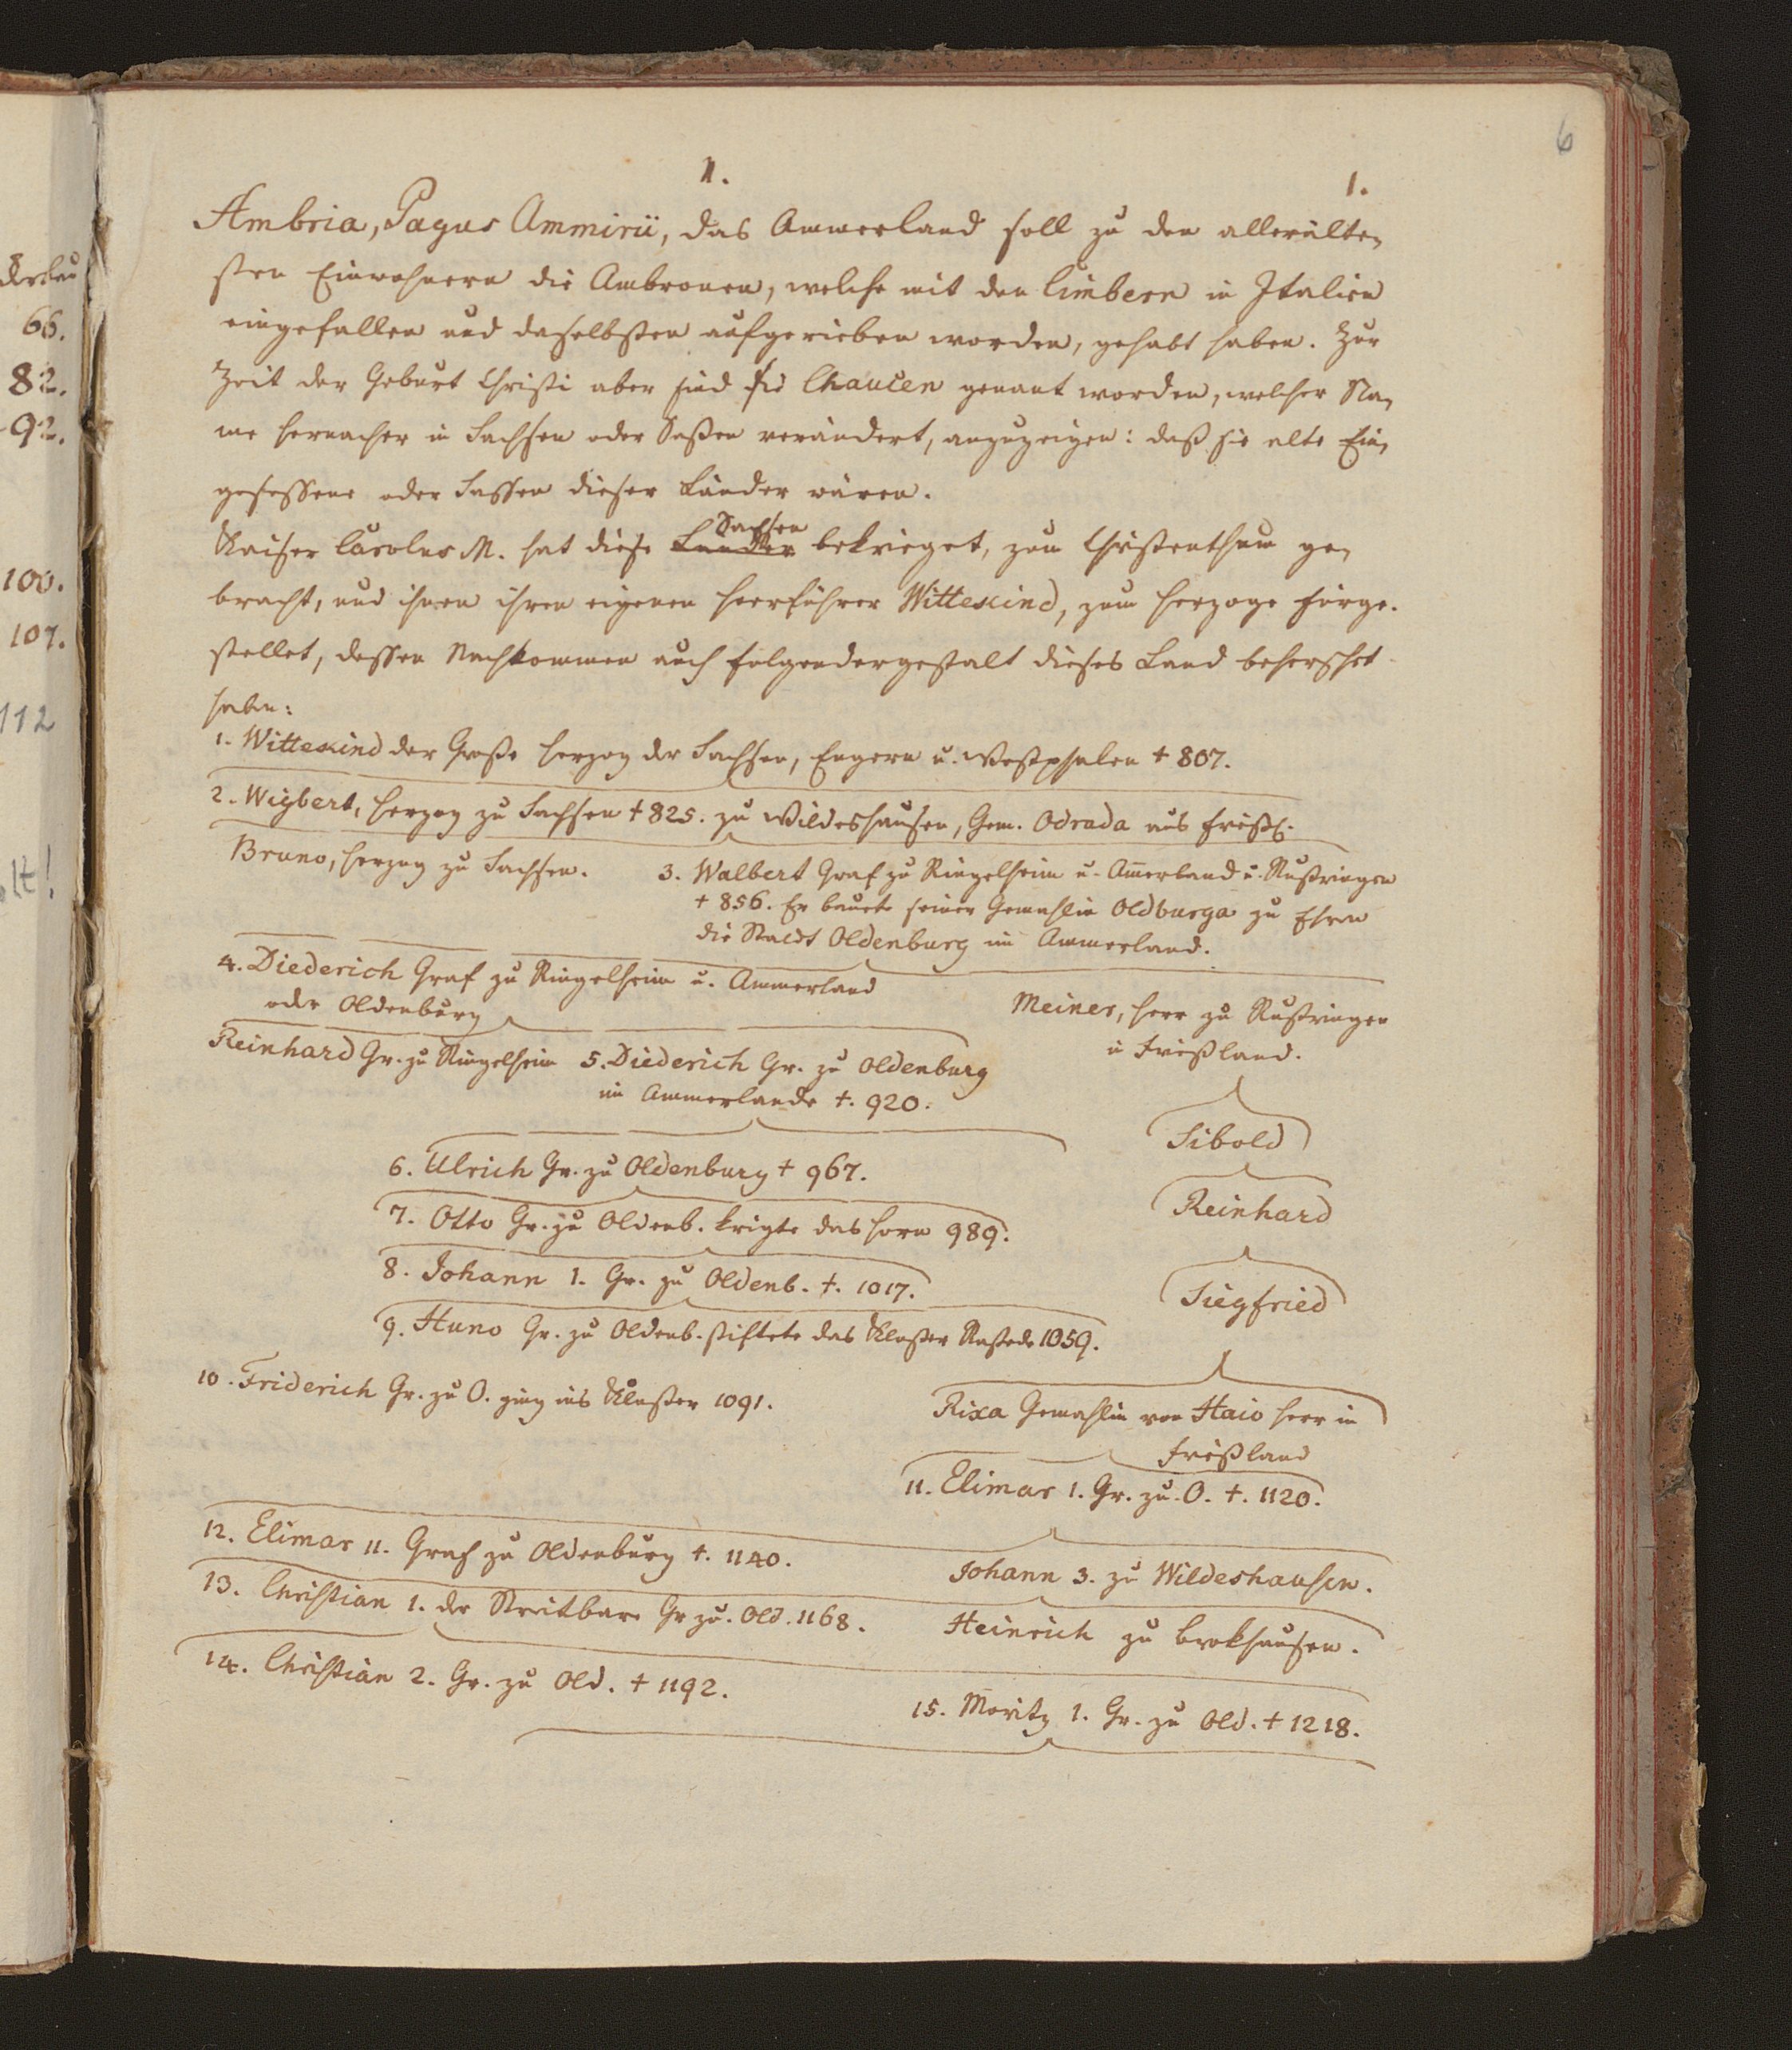 6
II.
1.
Ambria, Pagus Ammirii, das Ammerland soll zu den allerälte,
sten Einwohnern die Ambronen, welche mit den Cimbern in Italien
eingefallen und daselbsten aufgerieben worden, gehabt haben. Zur
Zeit der Geburt Christi aber sind sie Chaucen genant worden, welcher Na,
me hernacher in Sachsen oder Saßen verändert, anzuzeigen: daß sie alte Ein,
gesessene oder Sassen dieser Länder wären.
Sachsen
Kaiser Carolus M. hat diese Länder bekrieget, zum Christenthum ge,
bracht, und ihnen ihren eigenen Heerführer Wittekind, zum Herzoge fürge.
stellet, dessen Nachkommen auch folgendergestalt dieses Land beherschet
haben:
1. Wittekind der Große Herzog der Sachsen, Engern u. Westphalen † 807.
2. Wigbert, Herzog zu Sachsen † 825. zu Wildeshausen, Gem. Odrada aus Frießl.
Bruno, Herzog zu Sachsen.
3. Walbert Graf zu Ringelheim u. Am̄erland u. Rustringen
† 856. Er bauete seiner Gemahlin Oldburga zu Ehren
die Stadt Oldenburg im Ammerland.
4. Diederich Graf zu Ringelheim u. Ammerland
oder Oldenburg
Meiner, Herr zu Rustringen
in Frießland.
Reinhard Gr. zu Ringelheim
5. Diederich Gr. zu Oldenburg
im Ammerlande †. 920.
Sibold
6. Ulrich Gr. zu Oldenburg † 967.
Reinhard
7. Otto Gr. zu Oldenb. krigte das Horn 989.
8. Johann 1. Gr. zu Oldenb. †. 1017.
Siegfried
9. Huno Gr. zu Oldenb. stiftete das Kloster Rastede 1059.
10. Friderich Gr. zu O. ging ins Kloster 1091.
Rixa Gemahlin von Haio Herr in
Frießland
11. Elimar 1. Gr. zu. O. †. 1120.
12. Elimar 11. Graf zu Oldenburg †. 1140.
Johann 3. zu Wildeshausen.
13. Christian 1. der Streitbare Gr zu. Old. 1168.
Heinrich zu Brokhausen.
14. Christian 2. Gr. zu Old. † 1192.
15. Moritz 1. Gr. zu Old. † 1218.
66.
82.
92.
100.
107.
112